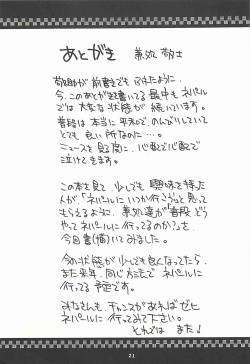 あとがき
前書きでも ふれたように、
今、このあとがきを書いてる 最中も ネパール
では 大変な 状態が 続いています。
普段は 本当に 平和で、のんびりしていて
とても 良い 所なのに…。
ニュースを見る度に 心配で心配で
泣けてきます。
この本を見て、少しでも 興味を持った
人が、「ネパールに いつか行こう」と思って
もらえるように、 が普段、どう
やって ネパールに 行ってるのか?を
今回 書(描)いてみました。
今の状態が 少しでも 良くなってたら
また来年、同じ方法で ネパールに
行ってる 予定です。
みなさんも、チャンスがあれば ゼヒ
ネパールに 行ってみて 下さい。
それでは また♪
21